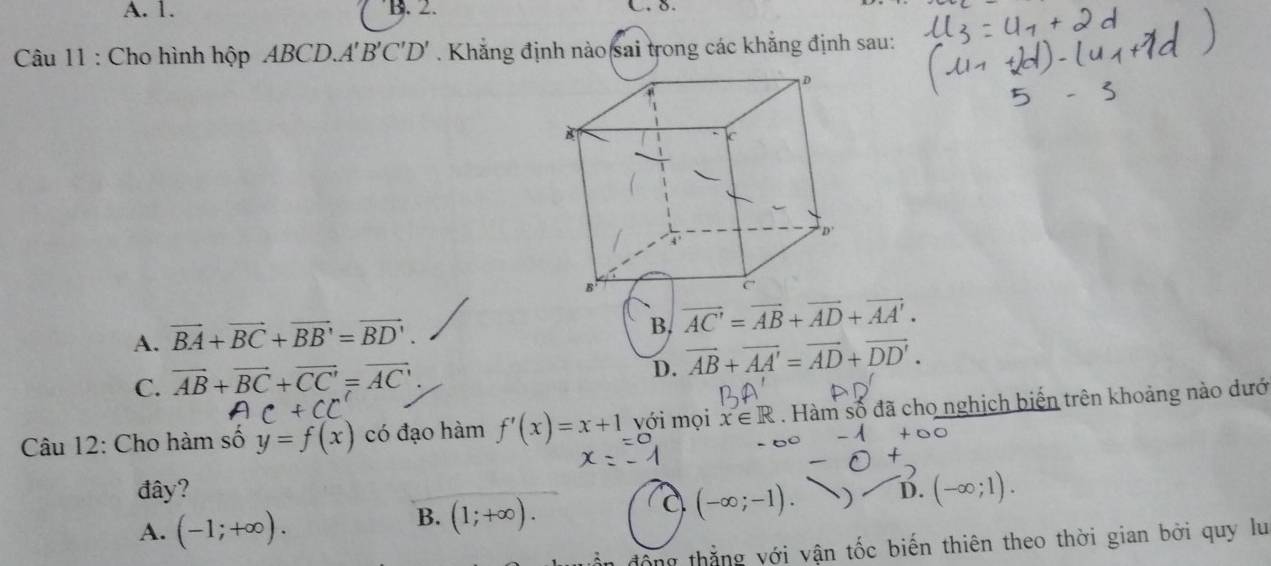 A. 1. B. 2. C. 8.
u₃ = u₁ + 2d
Câu 11 : Cho hình hộp ABCD.A'B'C'D' . Khẳng định nào sai trong các khẳng định sau:
(u₁ + 2d) - (u₁ + 1d)
5 - 3
D
C
A'
D'
B'
C'
A. \overrightarrow{BA} + \overrightarrow{BC} + \overrightarrow{BB'} = \overrightarrow{BD'} . B. \overrightarrow{AC'} = \overrightarrow{AB} + \overrightarrow{AD} + \overrightarrow{AA'} .
C. \overrightarrow{AB} + \overrightarrow{BC} + \overrightarrow{CC'} = \overrightarrow{AC'} . D. \overrightarrow{AB} + \overrightarrow{AA'} = \overrightarrow{AD} + \overrightarrow{DD'} .
AC + CC' BA' AD'
Câu 12: Cho hàm số y = f(x) có đạo hàm f'(x) = x + 1 với mọi x ∈ ℝ . Hàm số đã cho nghịch biến trên khoảng nào dướ
= 0 -∞ -1 +∞
x = -1 - 0 +
đây?
A. (-1;+∞). B. (1;+∞). C. (-∞;-1). D. (-∞;1).
động thẳng với vận tốc biến thiên theo thời gian bởi quy lu